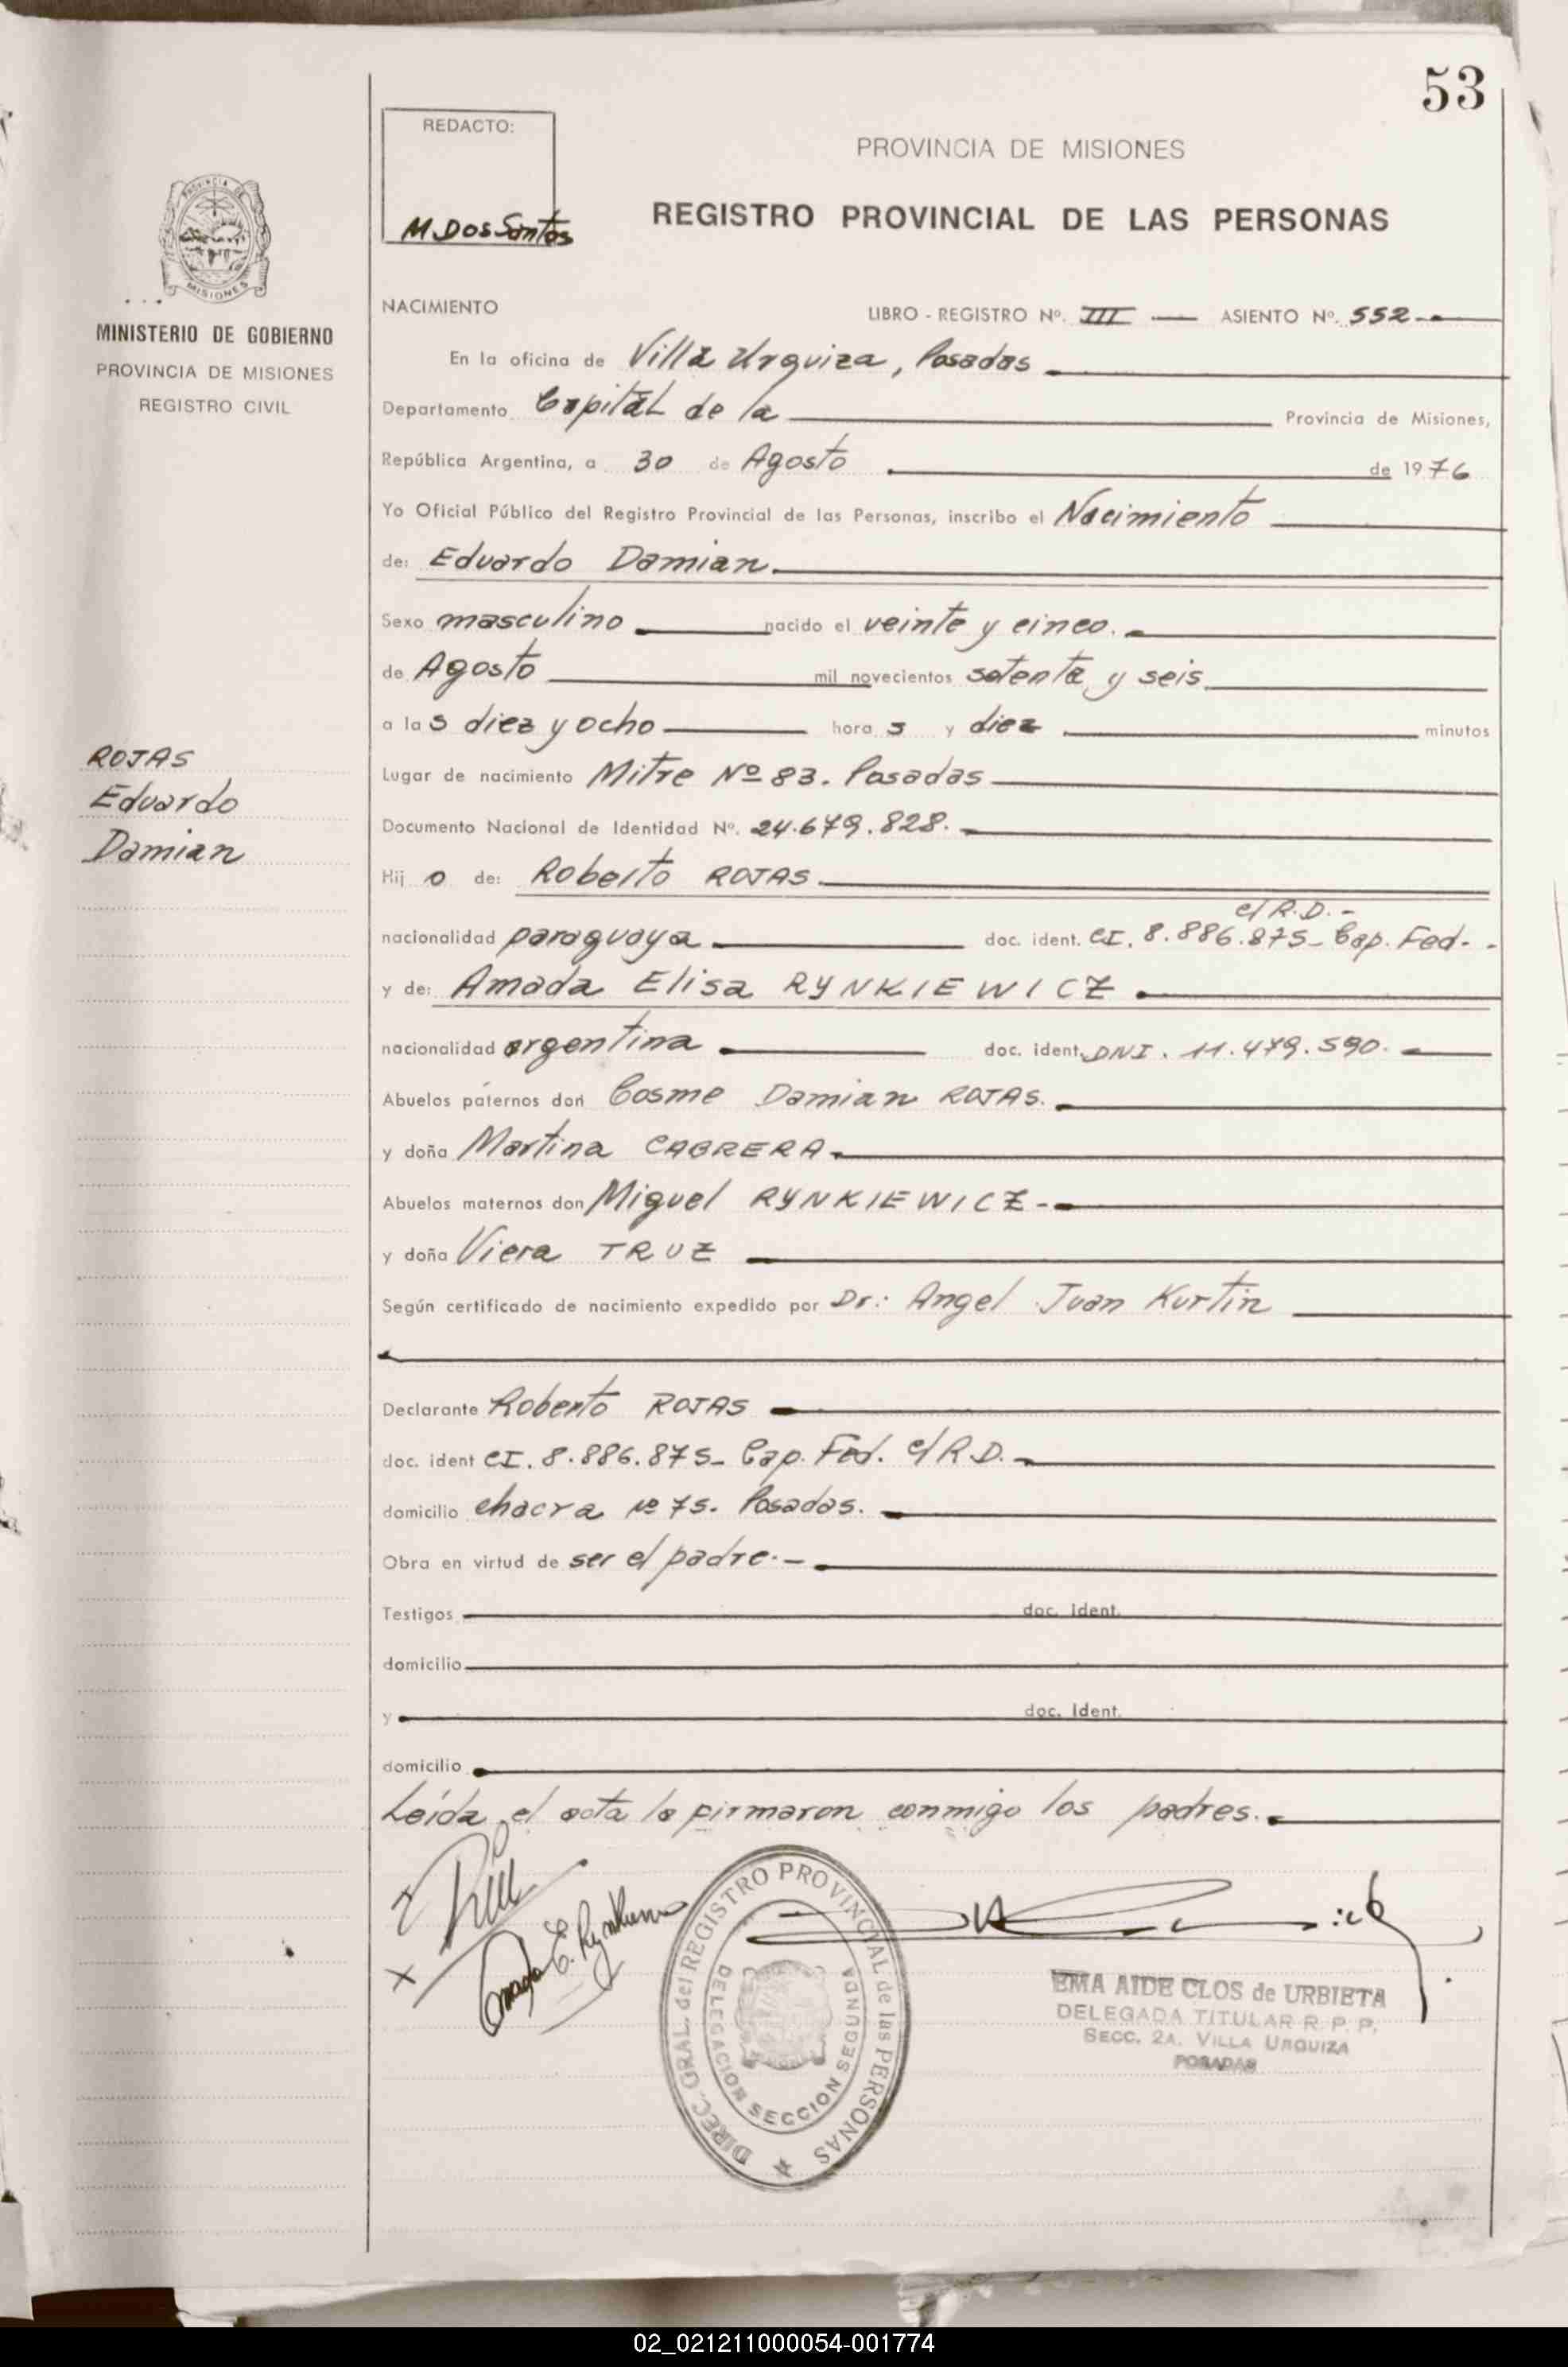 53
REDACTO:
M. Dos Santos
PROVINCIA DE MISIONES
REGISTRO PROVINCIAL DE LAS PERSONAS
PROVINCIA DE
MISIONES
MINISTERIO DE GOBIERNO
PROVINCIA DE MISIONES
REGISTRO CIVIL
ROJAS
Eduardo
Damian
NACIMIENTO LIBRO - REGISTRO Nº. III — ASIENTO Nº. 552.-
En la oficina de Villa Urquiza, Posadas
Departamento Capital de la Provincia de Misiones,
República Argentina, a 30 de Agosto de 1976
Yo Oficial Público del Registro Provincial de las Personas, inscribo el Nacimiento
de: Eduardo Damian.
Sexo masculino nacido el veinte y cinco.
de Agosto mil novecientos setenta y seis
a las diez y ocho horas y diez minutos
Lugar de nacimiento Mitre Nº 83. Posadas
Documento Nacional de Identidad Nº. 24.679.828.
Hijo de: Roberto ROJAS
c/ R.D.-
nacionalidad paraguaya doc. ident. CI. 8.886.875- Cap. Fed.-
y de: Amada Elisa RYNKIEWICZ
nacionalidad argentina doc. ident. DNI. 11.479.590.
Abuelos paternos don Cosme Damian ROJAS.
y doña Martina CABRERA
Abuelos maternos don Miguel RYNKIEWICZ-
y doña Viera TRUZ
Según certificado de nacimiento expedido por Dr.: Angel Juan Kurtin
Declarante Roberto ROJAS
doc. ident CI. 8.886.875- Cap. Fed. c/ R.D.
domicilio chacra Nº 75. Posadas.
Obra en virtud de ser el padre.-
Testigos doc. ident.
domicilio
y doc. ident.
domicilio
Leída el acta la firmaron conmigo los padres.
Amada E.
DIREC. GRAL. del REGISTRO PROVINCIAL de las PERSONAS
DELEGACION SECCION SEGUNDA
EMA AIDE CLOS de URBIETA
DELEGADA TITULAR R. P. P.
SECC. 2A. VILLA URQUIZA
POSADAS
02_021211000054-001774